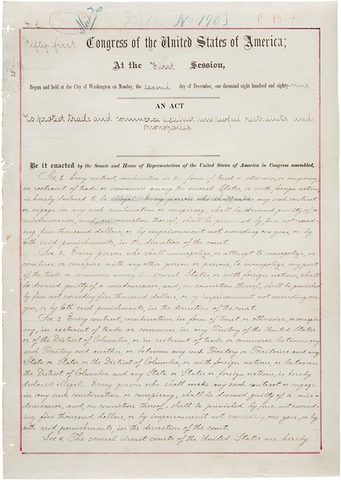 No 1903
Fifty-first Congress of the United States of America;
At the First Session,
Begun and held at the City of Washington on Monday, the second day of December, one thousand eight hundred and eighty-nine.
AN ACT
To protect trade and commerce against unlawful restraints and
monopolies.
Be it enacted by the Senate and House of Representatives of the United States of America in Congress assembled,
Sec. 1. Every contract, combination in the form of trust or otherwise, or conspiracy,
in restraint of trade or commerce among the several States, or with foreign nations,
is hereby declared to be illegal. Every person who shall make any such contract or
engage in any such combination or conspiracy, shall be deemed guilty of a
misdemeanor, and, on conviction thereof, shall be punished by fine not exceed-
ing five thousand dollars, or by imprisonment not exceeding one year, or by
both said punishments, in the discretion of the court.
Sec. 2. Every person who shall monopolize, or attempt to monopolize, or
combine or conspire with any other person or persons, to monopolize any part
of the trade or commerce among the several States, or with foreign nations, shall
be deemed guilty of a misdemeanor, and, on conviction thereof, shall be punished
by fine not exceeding five thousand dollars, or by imprisonment not exceeding one
year, or by both said punishments, in the discretion of the court.
Sec. 3. Every contract, combination in form of trust or otherwise, or conspira-
cy, in restraint of trade or commerce in any Territory of the United States
or of the District of Columbia, or in restraint of trade or commerce between any
such Territory and another, or between any such Territory or Territories and any
State or States or the District of Columbia, or with foreign nations, or between
the District of Columbia and any State or States or foreign nations, is hereby
declared illegal. Every person who shall make any such contract or engage
in any such combination or conspiracy, shall be deemed guilty of a mis-
demeanor, and, on conviction thereof, shall be punished by fine not exceed-
ing five thousand dollars, or by imprisonment not exceeding one year, or by
both said punishments, in the discretion of the court.
Sec. 4. The several circuit courts of the United States are hereby